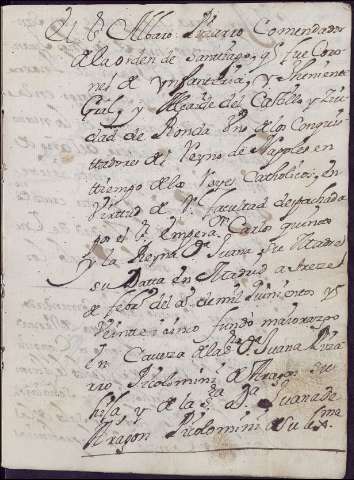 El Sr. Albaro Picarro Comendador
de la orden de Santiago, q. fue Coro
nel de Ynfanteria, y theniente
Gral, y Alcaide del Castillo y Ziu
dad de Ronda Vno de los Conquis
tadores de Reyno de Napoles en
tiempo de los Reyes Catholicos, en
Virtud de Rl. facultad despachada
por el Sr. Empera.or Carlo quinto
y la Reyna Da Juana, su Madre
su Data en Madrid a treze
de febro del año de mil quinientos y
Veinte i cinco fundo maiorazgo
en Caveza de la Sra. Da. Juana Piza
rro Picolomini de Aragon su
hija y de la Sra. Da. Juana de
Aragon Picolomini su ma